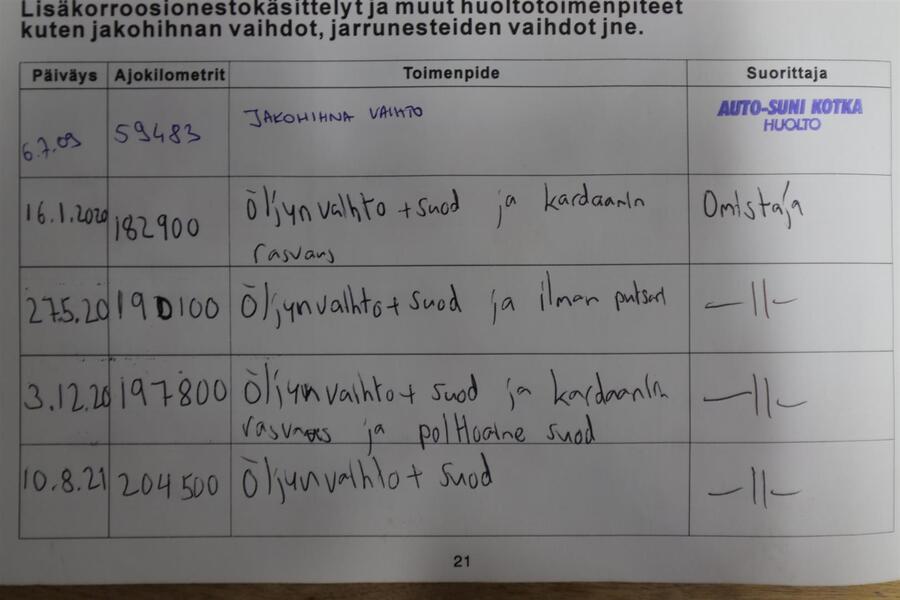 Lisäkorroosionestokäsittelyt ja muut huoltotoimenpiteet
kuten jakohihnan vaihdot, jarrunesteiden vaihdot jne.
Päiväys Ajokilometrit Toimenpide Suorittaja
6.7.09 59483 JAKOHIHNA VAIHTO AUTO-SUNI KOTKA
HUOLTO
16.1.2020 182900 Öljynvaihto + suod ja kardaanin Omistaja
rasvaus
27.5.20 190100 Öljynvaihto + suod ja ilman putsari —||—
3.12.20 197800 Öljynvaihto + suod ja kardaanin —||—
rasvaus ja polttoaine suod
10.8.21 204500 Öljynvaihto + suod —||—
21